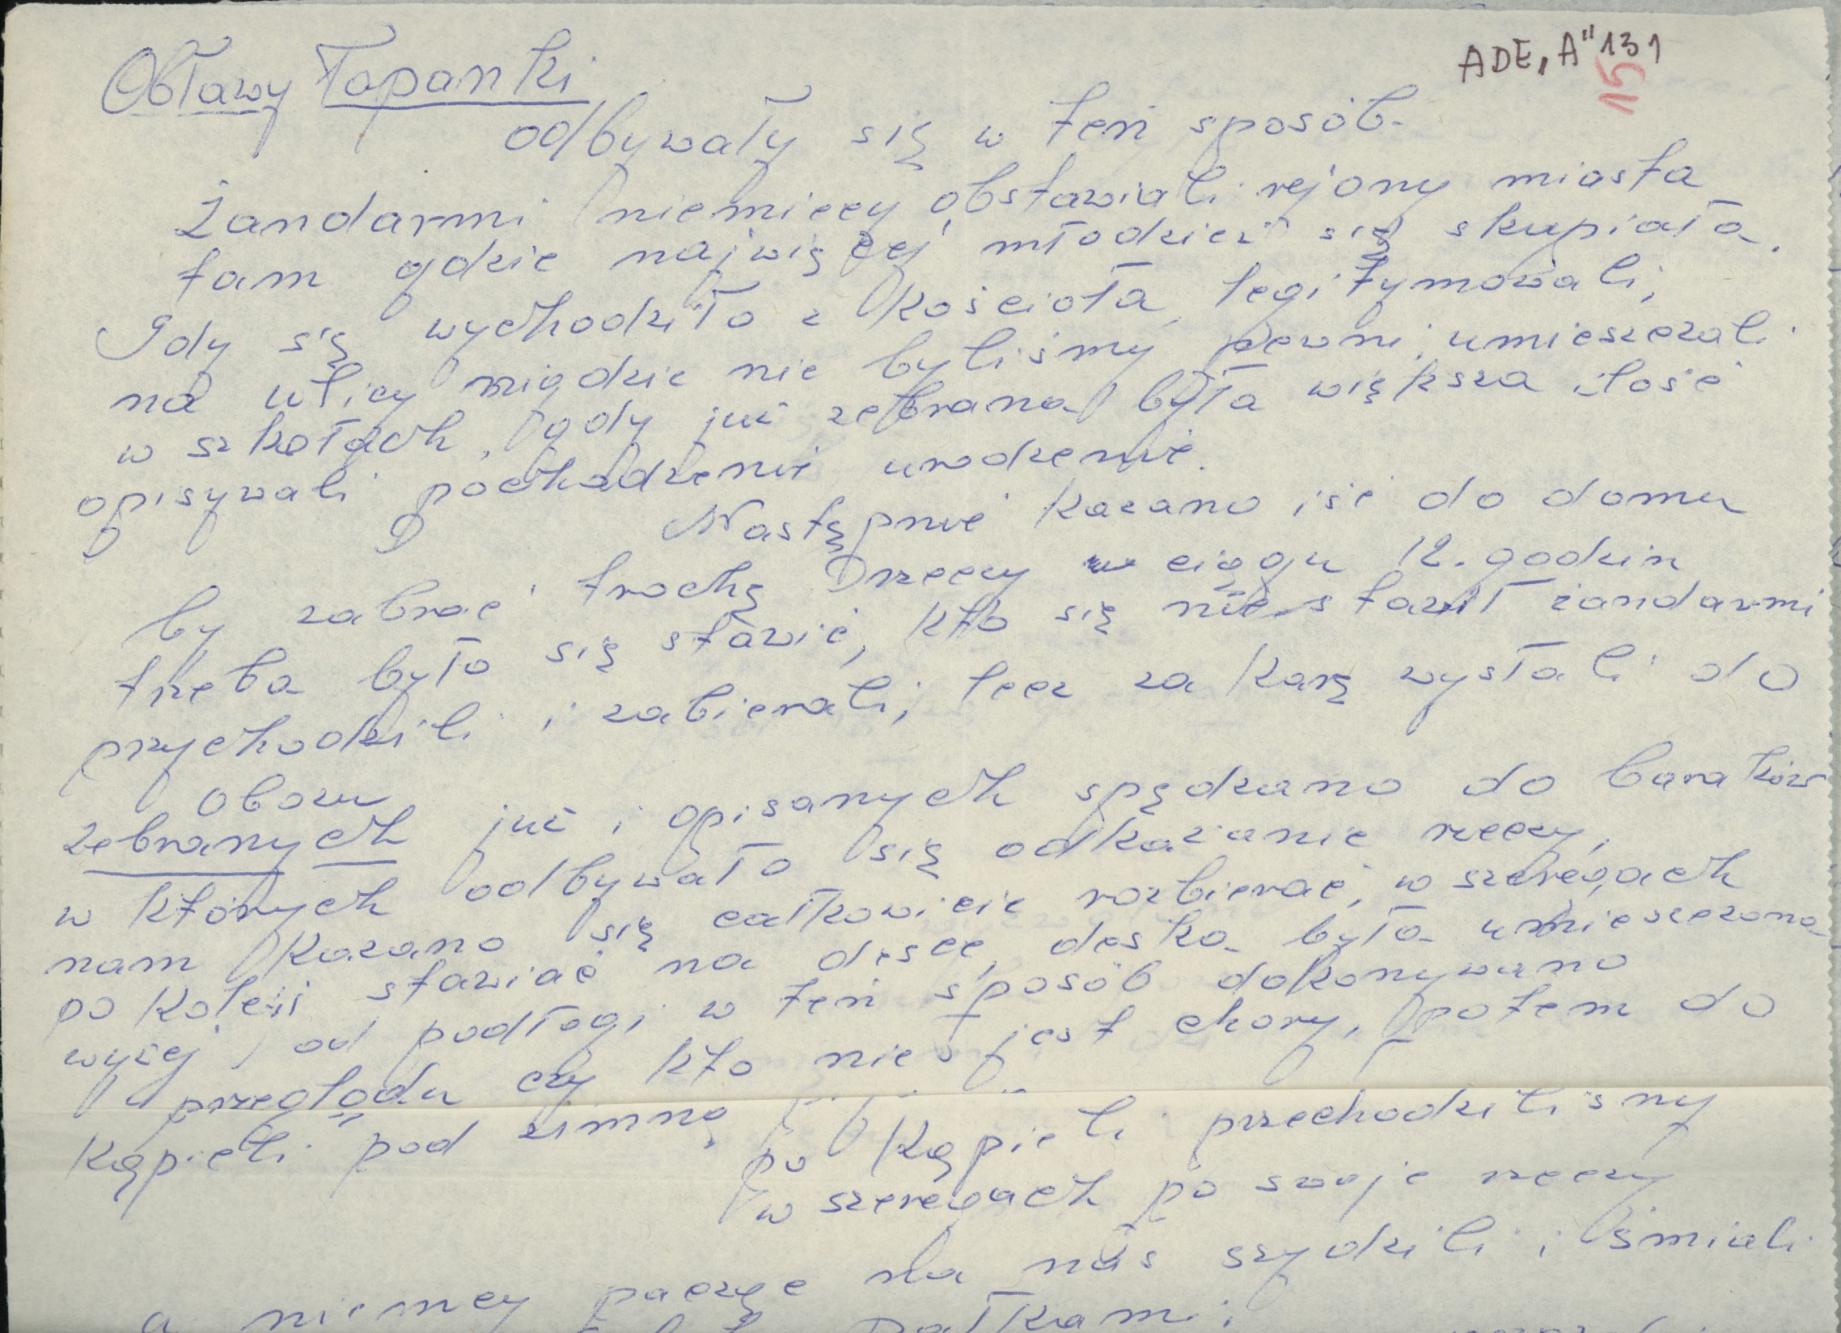 ADE, A" 131
15
Obławy Łapanki
odbywały się w ten sposób.
Żandarmi niemieccy obstawiali rejony miasta
tam gdzie najwięcej młodzież się skupiała.
Gdy się wychodziło z kościoła, legitymowali,
na ulicy nigdzie nie byliśmy pewni, umieszczali
w szkołach, gdy już zebrana była większa ilość
opisywali pochodzenie urodzenie.
Następnie kazano iść do domu
by zabrać trochę rzeczy w ciągu 12. godzin
trzeba było się stawić, kto się nie stawił żandarmi
przychodzili i zabierali; lecz za karę wysłali do
obozu
zebranych już i opisanych spędzano do baraków
w których odbywało się odkażanie rzeczy,
nam kazano się całkowicie rozbierać, w szeregach
po kolei stawiać na desce, deska była umieszczona
wyżej od podłogi w ten sposób dokonywano
przeglądu czy kto nie jest chory, potem do
kąpieli pod zimną
po kąpieli przechodziliśmy
w szeregach po swoje rzeczy
a niemcy patrząc na nas szydzili i śmiali
pałkami